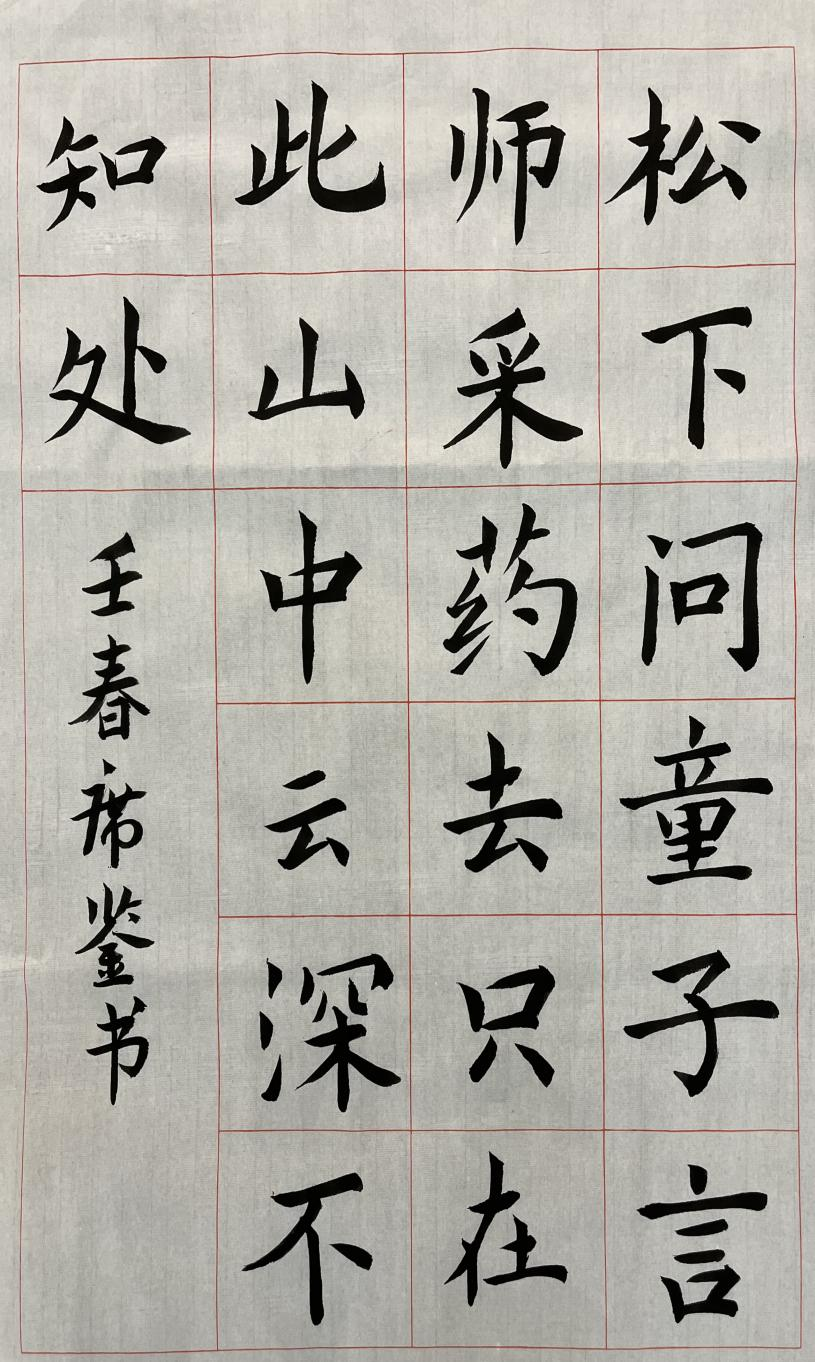 松下问童子言
师采药去只在
此山中云深不
知处
壬春席鉴书